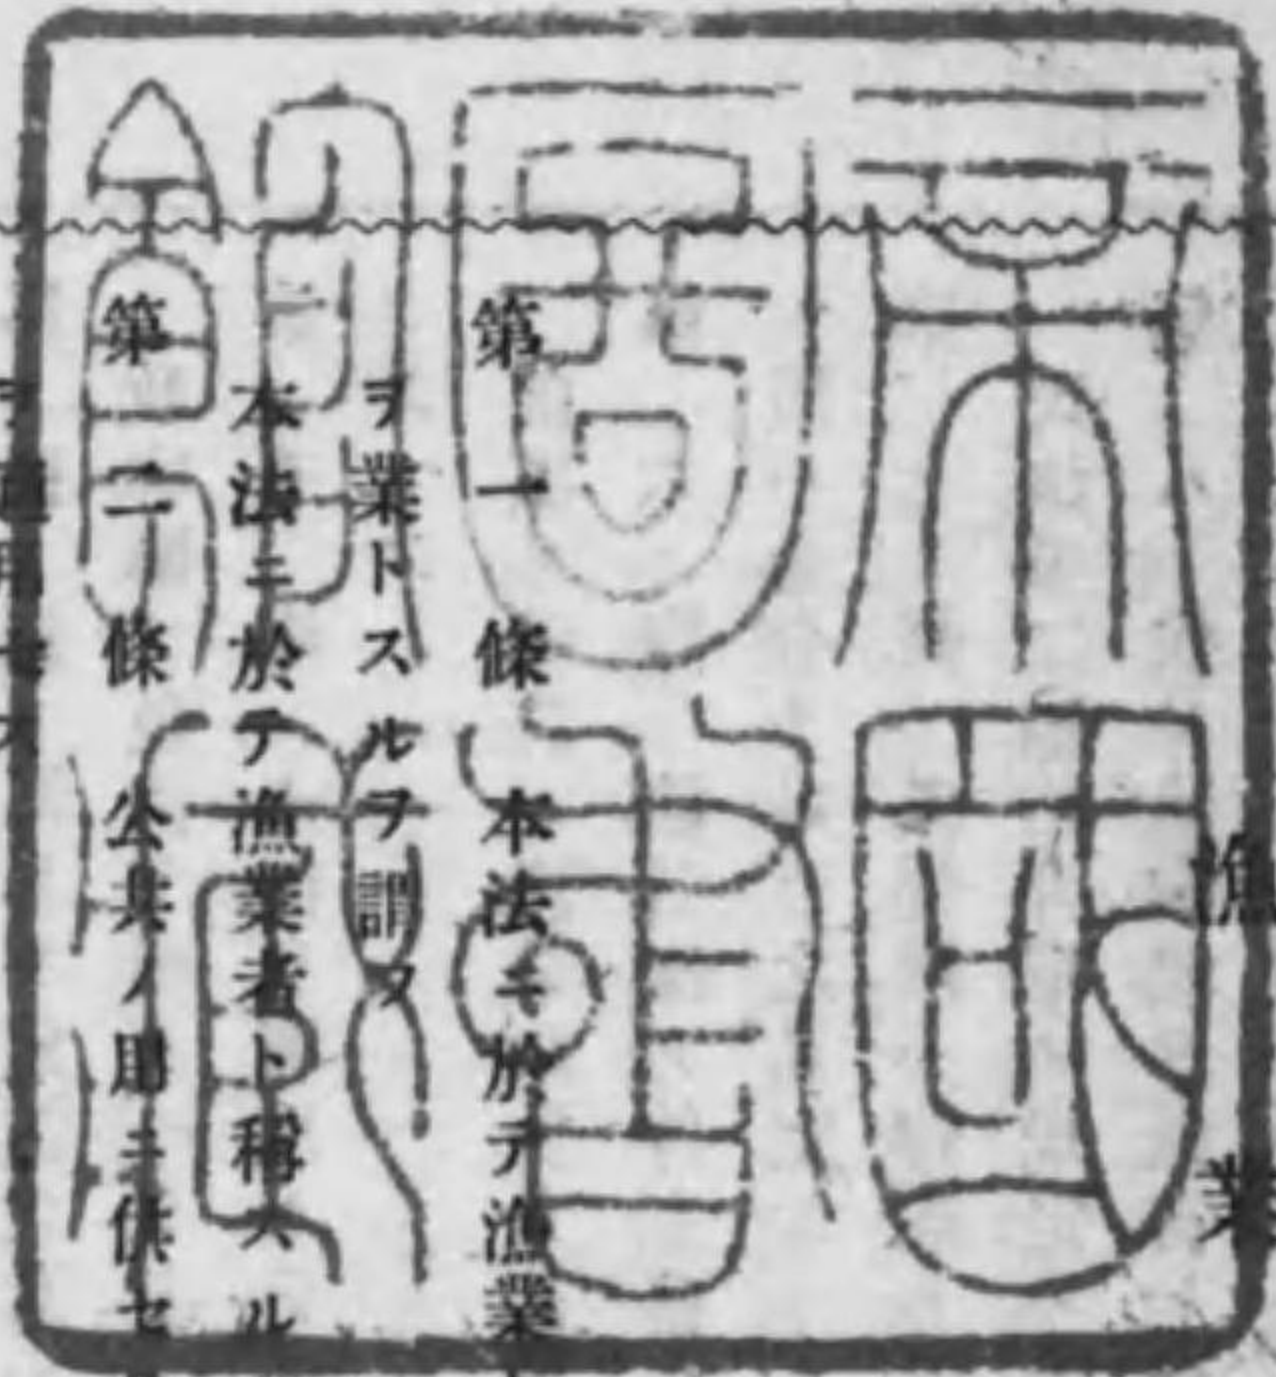 帝國
圖書
館藏
漁業
第一條 本法ニ於テ漁業
ヲ業トスルヲ謂フ
本法ニ於テ漁業者ト稱スル
第二條 公共ノ用ニ供セ